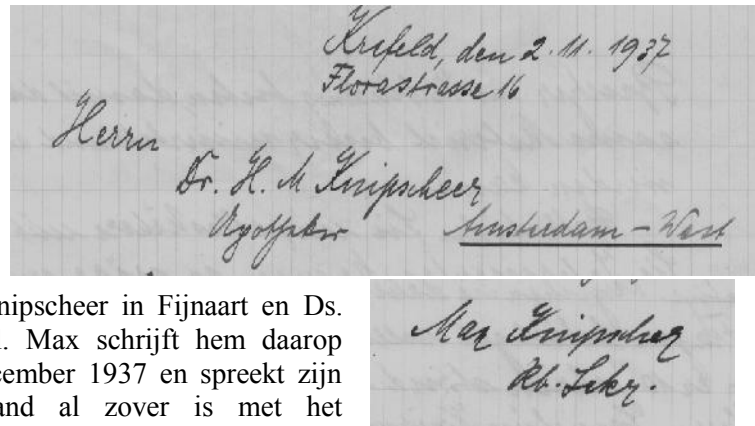 Krefeld, den 2.11.1937
Florastrasse 16
Herrn
Dr. H. M Knipscheer
Apotheker Amsterdam - West
nipscheer in Fijnaart en Ds.
. Max schrijft hem daarop
cember 1937 en spreekt zijn
and al zover is met het
Max Knipscheer
Rb. Sekr.